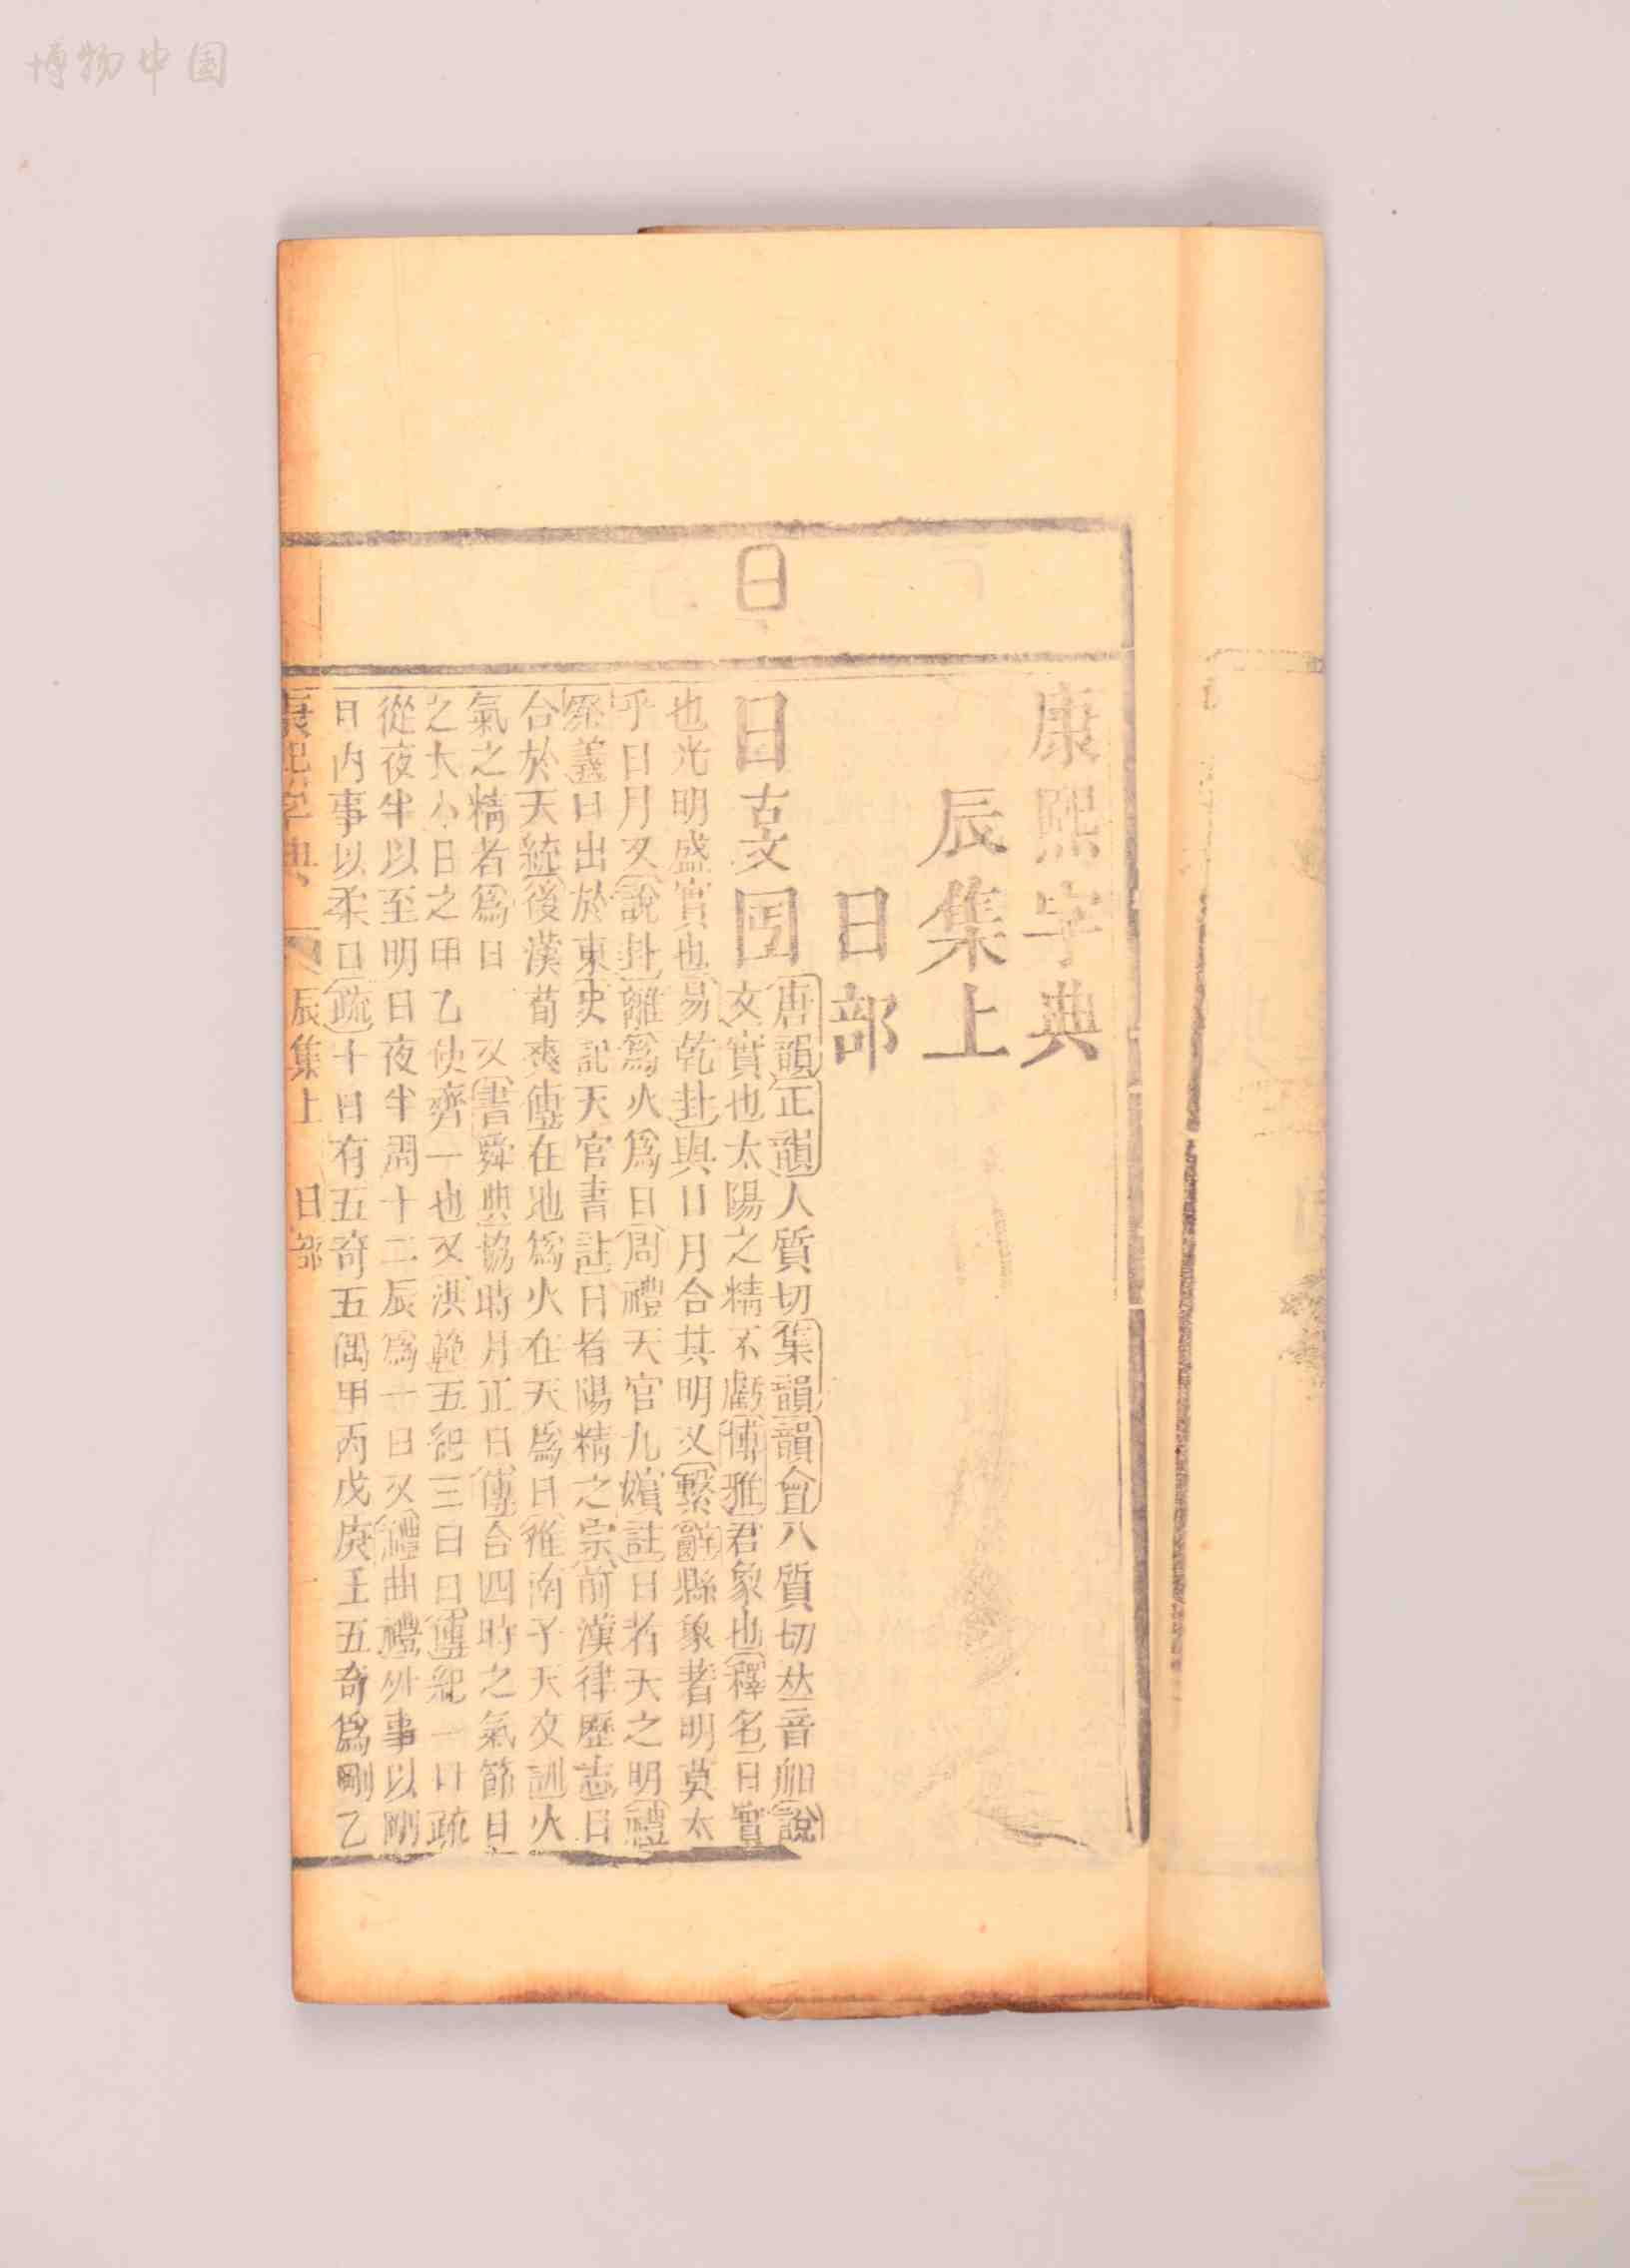 博物中国
日
康熙字典
辰集上
日部
日古文𡆠
唐韻正韻人質切集韻韻會入質切𠀤音馹說
文實也太陽之精不虧博雅君象也釋名日實
也光明盛實也易乾卦與日月合其明又繫辭縣象著明莫大
乎日月又說卦離爲火爲日周禮天官九嬪註日者天之明禮
祭義日出於東史記天官書註日者陽精之宗前漢律歷志日
合於天統後漢荀爽傳在地爲火在天爲日淮南子天文訓火
氣之精者爲日 又書舜典協時月正日傳合四時之氣節月
之大小日之甲乙使齊一也又洪範五紀三曰日傳紀一日疏
從夜半以至明日夜半周十二辰爲一日又禮曲禮外事以剛
日內事以柔日疏十日有五奇五偶甲丙戊庚壬五奇爲剛乙
康熙字典 辰集上 日部 一